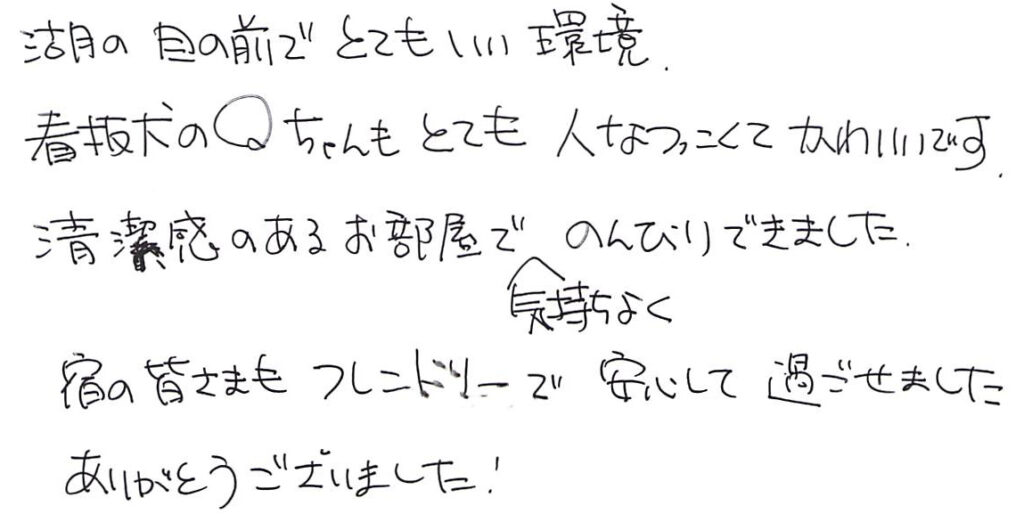 湖の 目の前で とてもいい 環境.
看板犬のQちゃんも とても 人なつっこくて かわいいです.
清潔感のあるお部屋で のんびりできました.
気持ちよく
宿の皆さまも フレンドリーで 安心して 過ごせました
ありがとうございました!